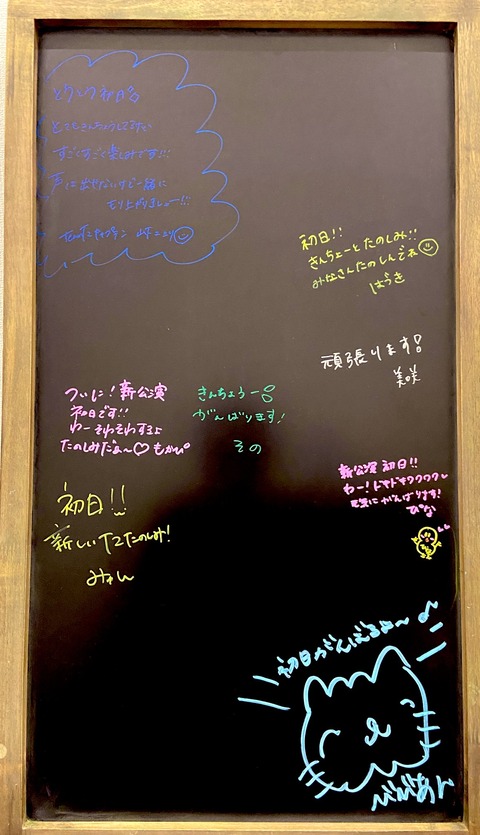 とうとう初日
とてもきんちょうしてるけど
すごくすごく楽しみです!!!
声に出せないけど一緒に
もり上がりましょー!!!
初日!!
きんちょーとたのしみ!!
みなさんたのしんでね
はづき
頑張ります!
美咲
ついに!新公演
初日です!!
わーそわそわするよ
たのしみだぁ〜♡ もかぴ
きんちょうー!
がんばります!
その
新公演 初日!!
わー!ドキドキワクワク〜
元気にがんばります!
ぴな
初日!!
新しいT2たのしみ!
みゃん
初日がんばるよ〜♪
びびあん